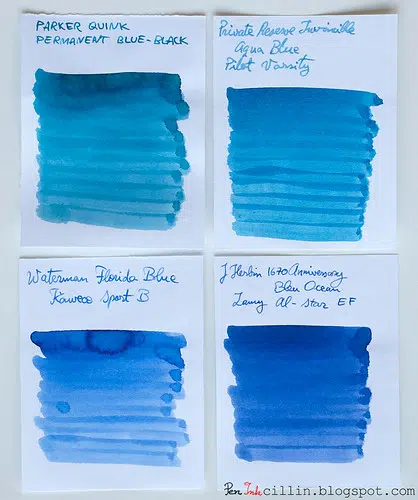 PARKER QUINK
PERMANENT BLUE-BLACK
Private Reserve Invincible
Aqua Blue
Pilot Varsity
Waterman Florida Blue
Kaweco Sport B
J Herbin 1670 Anniversary
Bleu Ocean
Lamy Al-star EF
Pen Inkcillin.blogspot.com